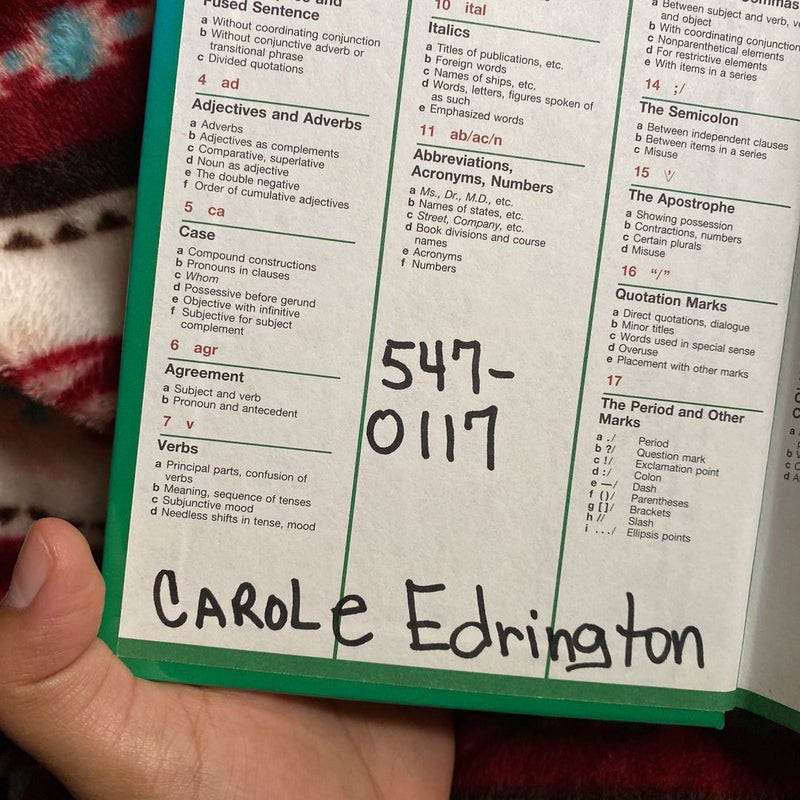 Fused Sentence
a Without coordinating conjunction
b Without conjunctive adverb or
transitional phrase
c Divided quotations
4 ad
Adjectives and Adverbs
a Adverbs
b Adjectives as complements
c Comparative, superlative
d Noun as adjective
e The double negative
f Order of cumulative adjectives
5 ca
Case
a Compound constructions
b Pronouns in clauses
c Whom
d Possessive before gerund
e Objective with infinitive
f Subjective for subject
complement
6 agr
Agreement
a Subject and verb
b Pronoun and antecedent
7 v
Verbs
a Principal parts, confusion of
verbs
b Meaning, sequence of tenses
c Subjunctive mood
d Needless shifts in tense, mood
10 ital
Italics
a Titles of publications, etc.
b Foreign words
c Names of ships, etc.
d Words, letters, figures spoken of
as such
e Emphasized words
11 ab/ac/n
Abbreviations,
Acronyms, Numbers
a Ms., Dr., M.D., etc.
b Names of states, etc.
c Street, Company, etc.
d Book divisions and course
names
e Acronyms
f Numbers
547-
0117
a Between subject and verb,
and object
b With coordinating conjunction
c Nonparenthetical elements
d For restrictive elements
e With items in a series
14 ;/
The Semicolon
a Between independent clauses
b Between items in a series
c Misuse
15 ’/
The Apostrophe
a Showing possession
b Contractions, numbers
c Certain plurals
d Misuse
16 “/”
Quotation Marks
a Direct quotations, dialogue
b Minor titles
c Words used in special sense
d Overuse
e Placement with other marks
17
The Period and Other
Marks
a ./ Period
b ?/ Question mark
c !/ Exclamation point
d :/ Colon
e —/ Dash
f ()/ Parentheses
g []/ Brackets
h // Slash
i .../ Ellipsis points
CAROLe Edrington